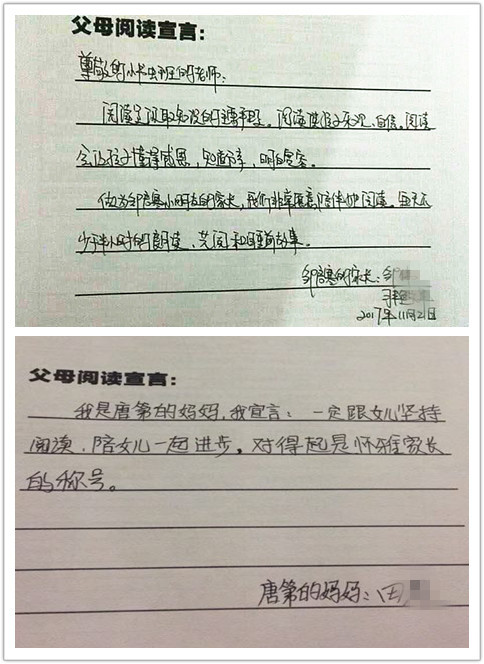 父母阅读宣言:
尊敬的小书虫班的老师:
阅读是汲取知识的主要手段。阅读使孩子乐观、自信。阅读
会让孩子懂得感恩,知道方寸,明白是非。
做为邹启慕小朋友的家长,我们非常愿意陪伴他阅读。每天不
少于半小时的朗读、共同和睡前故事。
邹启慕的家长:邹
2017年11月21日
父母阅读宣言:
我是唐第的妈妈,我宣言:一定跟女儿坚持
阅读,陪女儿一起进步,对得起是怀雅家长
的称号。
唐第的妈妈:田